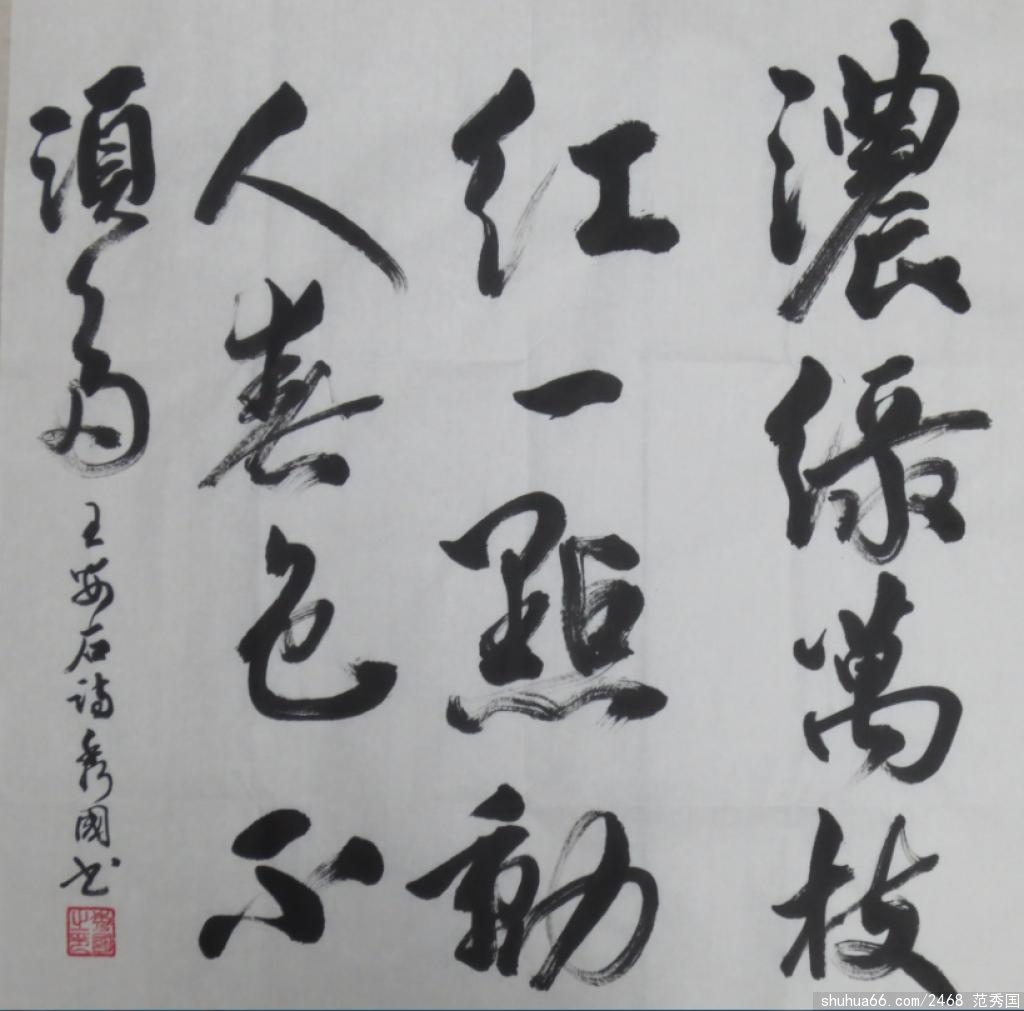 濃緑萬枝
紅一點動
人春色不
須多
王安石詩秀國书
shuhua66.com/2468 范秀国